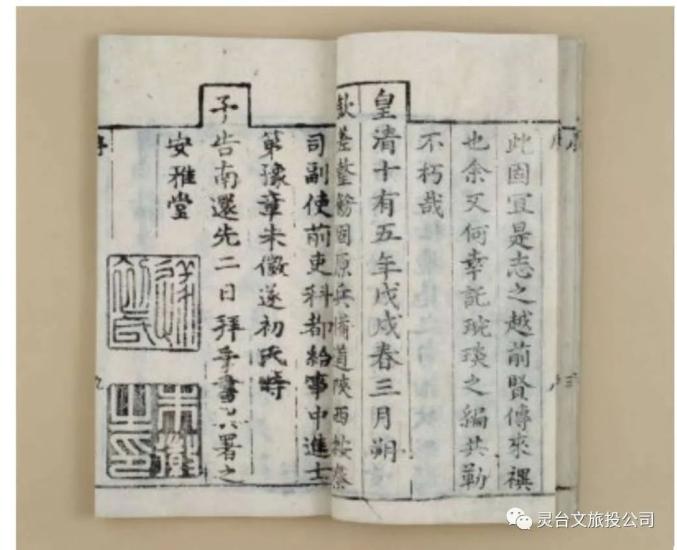 此固宜是志之越前賢傳來禩
也余又何幸託琬琰之編共勒
不朽哉
皇清十有五年戊戌春三月朔
欽差整飭固原兵備道陝西按察
司副使前吏科都給事中進士
第豫章朱徽遂初氏時
予告南還先二日拜手書於署之
安雅堂
朱徽之印
灵台文旅投公司